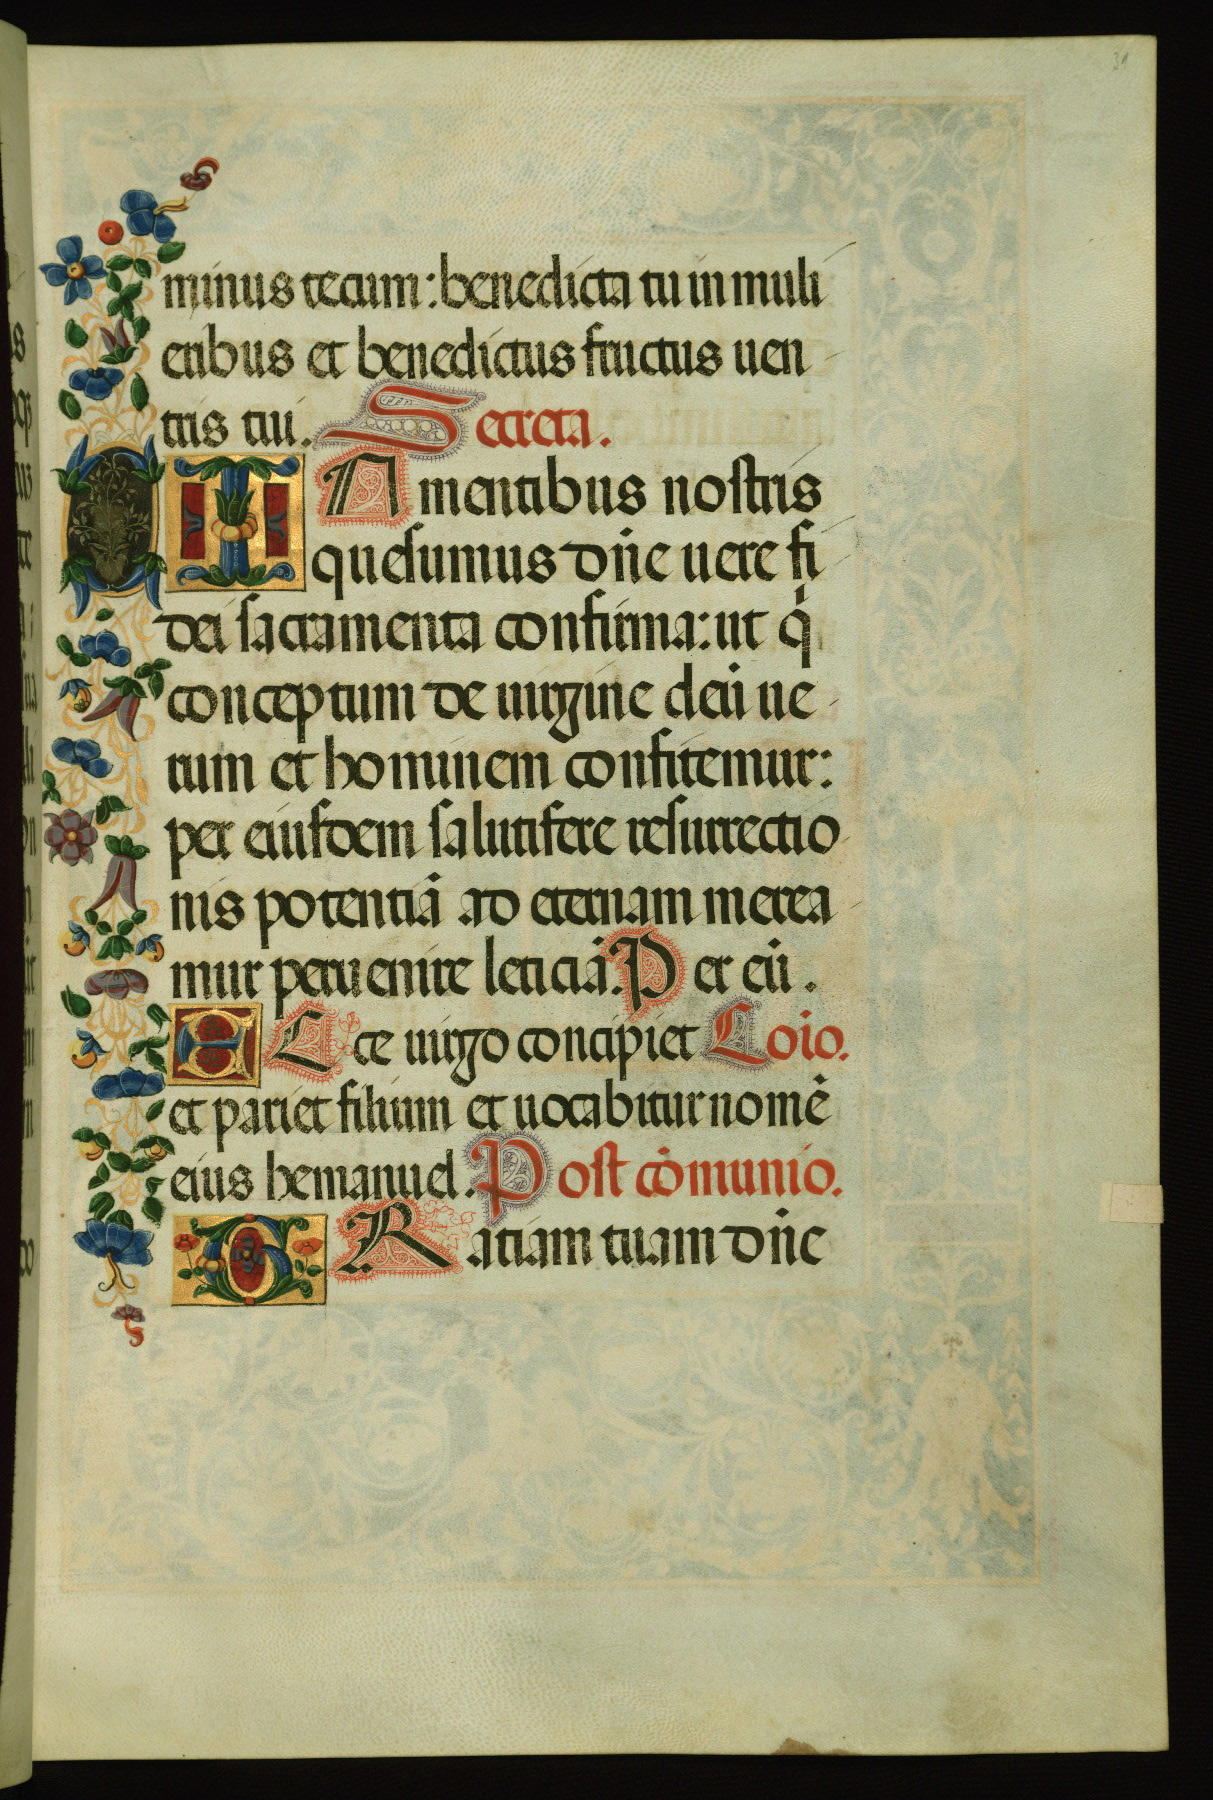 31
minus tecum: benedicta tu in muli
eribus et benedictus fructus uen
tris tui. Secreta.
IN mentibus nostris
quesumus dñe uere fi
dei sacramenta confirma: ut q̇
conceptum de uirgine deū ue
rum et hominem confitemur:
per eiusdem salutifere resurrectio
nis potentiā ad eternam merea
mur peruenire leticiā. Per eū.
ECce uirgo concipiet Coīo.
et pariet filium et uocabitur nomē
eius hemanuel. Post cōmunio.
GRatiam tuam dñe